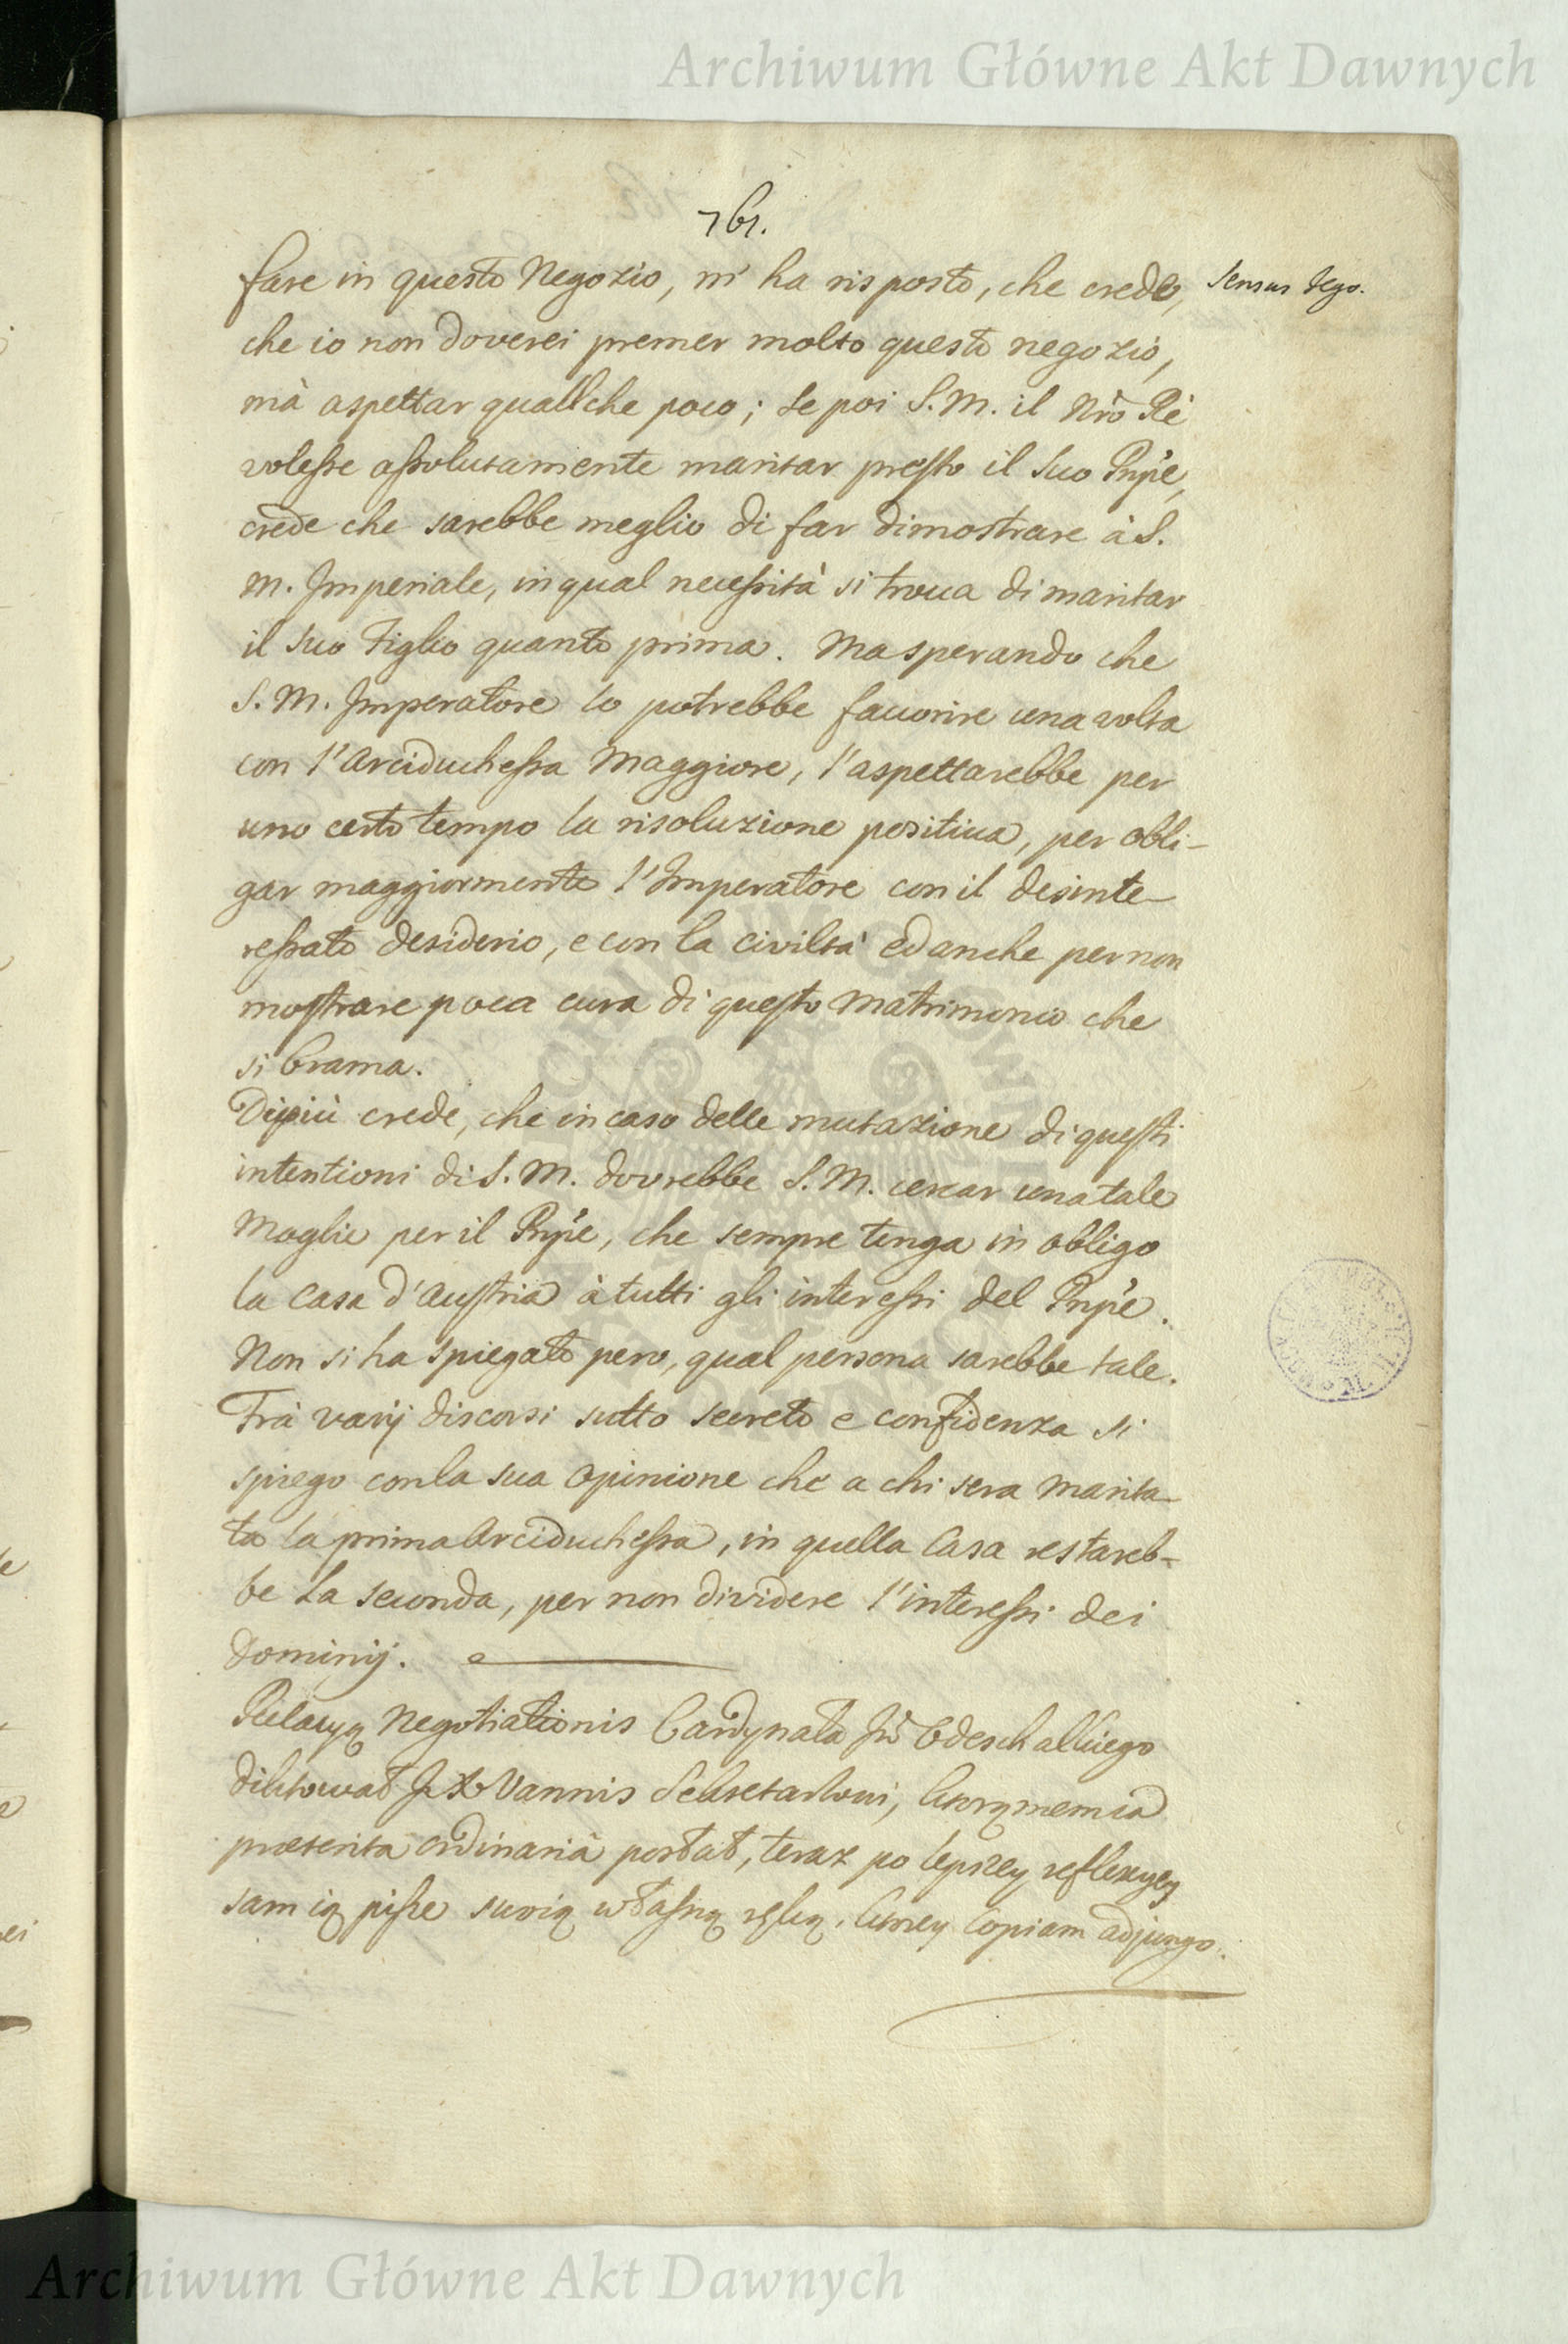 Archiwum Główne Akt Dawnych
761.
fare in questo Negozio, m' ha risposto, che crede,
Sensus Jego.
che io non doverei premer molto questo negozio,
mà aspettar quallche poco; se poi S. M. il Nrõ Rè
volesse assolutamente maritar presto il suo Pnpẽ,
crede che sarebbe meglio di far dimostrare à S.
M. Imperiale, in qual necessità si troua di maritar
il suo Figlio quanto prima. Ma sperando che
S. M. Imperatore lo potrebbe fauorire una volta
con l'Arciduchessa Maggiore, l'aspettarebbe per
uno certo tempo la risoluzione positiua, per obli-
gar maggiormente l'Imperatore con il desinte-
ressato desiderio, e con la civiltà ed anche per non
mostrare poca cura di questo Matrimonio che
si brama.
Dipiù crede, che in caso delle mutazione di questi
intentioni di S. M. dovrebbe S. M. cercar una tale
Moglie per il Pnpẽ, che sempre tenga in obligo
la Casa d'Austria à tutti gli interessi del Pnpẽ.
Non si ha spiegato pero, qual persona sarebbe tale.
Trà varij discorsi sotto secreto e confidenza si
spiego con la sua opinione che a chi sera marita-
ta la prima Arciduchessa, in quella Casa restareb-
be la seconda, per non dividere l'interessi dei
Dominij.
Relacyą Negotiationis Cardynała Odeschalkiego
diktował Vannis Sekretarzowi, ktorą
praeterita ordinaria posłał, teraz po lepszey reflexyey
sam ią pisze swoią własną ręką, ktorey Copiam adjungo.
Archiwum Główne Akt Dawnych